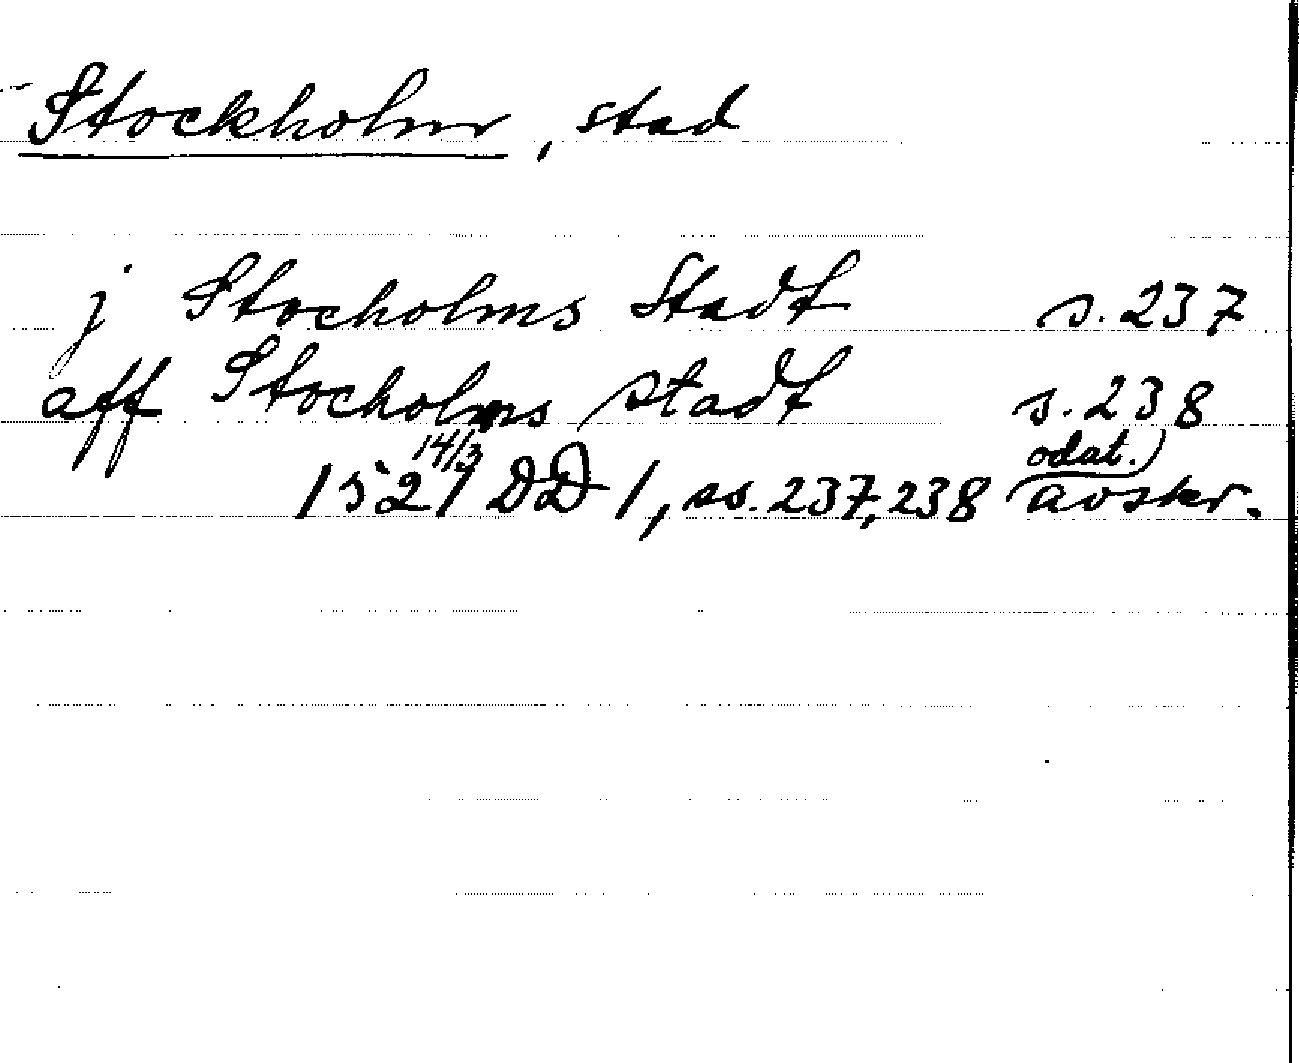 Stockholm, stad
j Stocholms Stadt s. 237
aff Stocholms stadt s. 238
14/3 odat.)
1521 DD 1, ss. 237, 238 avskr.